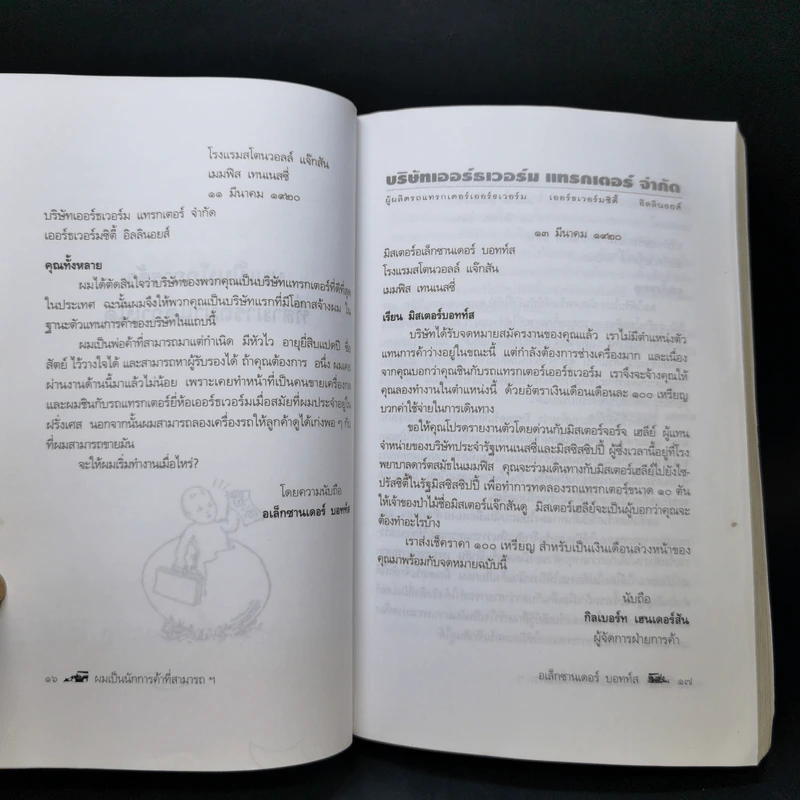 โรงแรมสโตนวอลล์ แจ๊กสัน
เมมฟิส เทนเนสซี่
๑๑ มีนาคม ๑๙๒๐
บริษัทเออร์ธเวอร์ม แทรกเตอร์ จำกัด
เออร์ธเวอร์มซิตี้ อิลลินอยส์
คุณทั้งหลาย
ผมได้ตัดสินใจว่าบริษัทของพวกคุณเป็นบริษัทแทรกเตอร์ที่ดีที่สุด
ในประเทศ ฉะนั้นผมจึงให้พวกคุณเป็นบริษัทแรกที่มีโอกาสจ้างผม ใน
ฐานะตัวแทนการค้าของบริษัทในแถบนี้
ผมเป็นพ่อค้าที่สามารถมาแต่กำเนิด มีหัวไว อายุยี่สิบแปดปี ซื่อ
สัตย์ ไว้วางใจได้ และสามารถหาผู้รับรองได้ ถ้าคุณต้องการ อนึ่ง ผมเคย
ผ่านงานด้านนี้มาแล้วไม่น้อย เพราะเคยทำหน้าที่เป็นคนขายเครื่องกล
และผมชินกับรถแทรกเตอร์ยี่ห้อเออร์ธเวอร์มเมื่อสมัยที่ผมประจำอยู่ใน
ฝรั่งเศส นอกจากนั้นผมสามารถลองเครื่องรถให้ลูกค้าดูได้เก่งพอ ๆ กับ
ที่ผมสามารถขายมัน
จะให้ผมเริ่มทำงานเมื่อไหร่?
โดยความนับถือ
อเล็กซานเดอร์ บอทท์ส
๑๖ ผมเป็นนักการค้าที่สามารถ ฯ
บริษัทเออร์ธเวอร์ม แทรกเตอร์ จำกัด
ผู้ผลิตรถแทรกเตอร์เออร์ธเวอร์ม เออร์ธเวอร์มซิตี้ อิลลินอยส์
๑๓ มีนาคม ๑๙๒๐
มิสเตอร์อเล็กซานเดอร์ บอทท์ส
โรงแรมสโตนวอลล์ แจ๊กสัน
เมมฟิส เทนเนสซี่
เรียน มิสเตอร์บอทท์ส
บริษัทได้รับจดหมายสมัครงานของคุณแล้ว เราไม่มีตำแหน่งตัว
แทนการค้าว่างอยู่ในขณะนี้ แต่กำลังต้องการช่างเครื่องมาก และเนื่อง
จากคุณบอกว่าคุณชินกับรถแทรกเตอร์เออร์ธเวอร์ม เราจึงจะจ้างคุณให้
คุณลองทำงานในตำแหน่งนี้ ด้วยอัตราเงินเดือนเดือนละ ๑๐๐ เหรียญ
บวกค่าใช้จ่ายในการเดินทาง
ขอให้คุณโปรดรายงานตัวโดยด่วนกับมิสเตอร์จอร์จ เฮลีย์ ผู้แทน
จำหน่ายของบริษัทประจำรัฐเทนเนสซี่และมิสซิสซิปปี้ ผู้ซึ่งเวลานี้อยู่ที่โรง
พยาบาลดาร์ตสมัธในเมมฟิส คุณจะร่วมเดินทางกับมิสเตอร์เฮลีย์ไปยังไซ-
ปรัสซิตี้ในรัฐมิสซิสซิปปี้ เพื่อทำการทดลองรถแทรกเตอร์ขนาด ๑๐ ตัน
ให้เจ้าของป่าไม้ชื่อมิสเตอร์แจ๊กสันดู มิสเตอร์เฮลีย์จะเป็นผู้บอกว่าคุณจะ
ต้องทำอะไรบ้าง
เราส่งเช็คราคา ๑๐๐ เหรียญ สำหรับเป็นเงินเดือนล่วงหน้าของ
คุณมาพร้อมกับจดหมายฉบับนี้
นับถือ
กิลเบอร์ท เฮนเดอร์สัน
ผู้จัดการฝ่ายการค้า
อเล็กซานเดอร์ บอทท์ส ๑๗